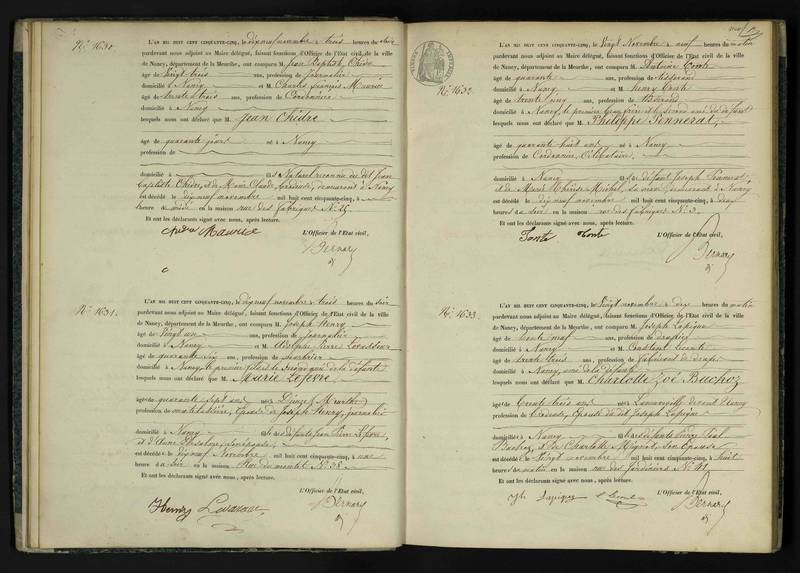 N° 1630.
L'AN MIL HUIT CENT CINQUANTE-CINQ, le dix neuf novembre à trois heures du soir
pardevant nous adjoint au Maire délégué, faisant fonctions d'Officier de l'État civil de la ville
de Nancy, département de la Meurthe, ont comparu M. Jean Baptiste Chidre
âgé de vingt trois ans, profession de journalier
domicilié à Nancy et M. Charles françois Maurice
âgé de trente trois ans, profession de Cordonnier
domicilié à Nancy
lesquels nous ont déclaré que M. Jean Chidre
âgé de quarante jours né à Nancy
profession de
domicilié à fils Naturel reconnu du dit Jean
Baptiste Chidre, et de Marie Claude, demeurant à Nancy
est décédé le dix neuf novembre mil huit cent cinquante-cinq, à
heure de midi en la maison rue des fabriques N° 15.
Et ont les déclarants signé avec nous, après lecture.
L'Officier de l'État civil,
Maurice
Bernard
N° 1631.
L'AN MIL HUIT CENT CINQUANTE-CINQ, le dix neuf novembre à trois heures du soir
pardevant nous adjoint au Maire délégué, faisant fonctions d'Officier de l'État civil de la ville
de Nancy, département de la Meurthe, ont comparu M. Joseph Henry
âgé de vingt un ans, profession de journalier
domicilié à Nancy et M. Adolphe Pierre Levasseur
âgé de quarante six ans, profession de marbrier
domicilié à Nancy, le premier fils et le second ami de la défunte
lesquels nous ont déclaré que M. Marie Lefevre
âgée de quarante sept ans née à Meurthe
profession de matelassière, Epouse de Joseph Henry, journalier
domiciliée à Nancy fille des défunts Jean Pierre Lefevre,
et d'Anne
est décédée le dix neuf Novembre mil huit cent cinquante-cinq, à une
heure du soir en la maison Rue du montet N° 38.
Et ont les déclarants signé avec nous, après lecture.
L'Officier de l'État civil,
Henry Levasseur
Bernard
N° 1632.
L'AN MIL HUIT CENT CINQUANTE-CINQ, le Vingt Novembre à neuf heures du matin
pardevant nous adjoint au Maire délégué, faisant fonctions d'Officier de l'État civil de la ville
de Nancy, département de la Meurthe, ont comparu M. Antoine Conte
âgé de quarante ans, profession de tisserand
domicilié à Nancy et M. henry Conte
âgé de trente cinq ans, profession de tisserand
domicilié à Nancy, le premier beau frère et le second ami du défunt
lesquels nous ont déclaré que M. Philippe Pennerat
âgé de quarante huit ans né à Nancy
profession de Cordonnier, Célibataire,
domicilié à Nancy fils de défunt Joseph Pennerat,
et de Marie Thérèse Michel, sa veuve, demeurant à Nancy
est décédé le dix neuf novembre mil huit cent cinquante-cinq, à deux
heures du soir en la maison rue des fabriques N° 3.
Et ont les déclarants signé avec nous, après lecture.
L'Officier de l'État civil,
Conte Conte
Bernard
N° 1633.
L'AN MIL HUIT CENT CINQUANTE-CINQ, le Vingt novembre à dix heures du matin
pardevant nous adjoint au Maire délégué, faisant fonctions d'Officier de l'État civil de la ville
de Nancy, département de la Meurthe, ont comparu M. Joseph Lapique
âgé de trente neuf ans, profession de
domicilié à Nancy et M. Constant Lecomte
âgé de trente trois ans, profession de fabricant de draps
domicilié à Nancy, ami de la défunte
lesquels nous ont déclaré que M. Charlotte Zoé Buchoz
âgée de Trente trois ans née à Laneuveville devant Nancy
profession de brodeuse, Epouse du dit Joseph Lapique
domiciliée à Nancy fille des défunts Pierre Paul
Buchoz, et de Charlotte Mignot, son Epouse
est décédée le Vingt novembre mil huit cent cinquante-cinq, à huit
heures du matin en la maison rue des Jardiniers N° 41.
Et ont les déclarants signé avec nous, après lecture.
L'Officier de l'État civil,
Jph Lapique C. Lecomte
Bernard